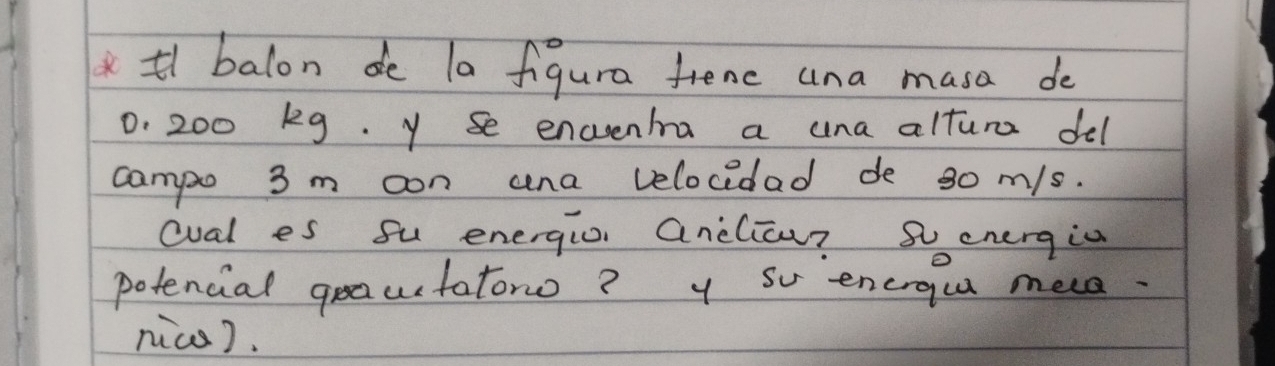 * El balon de la figura tiene una masa de
0.200 kg. y se encuentra a una altura del
campo 3 m con una velocidad de 30 m/s.
Cual es su energia cinética? su energia
potencial gravitatoria? y su energia meca-
nica).